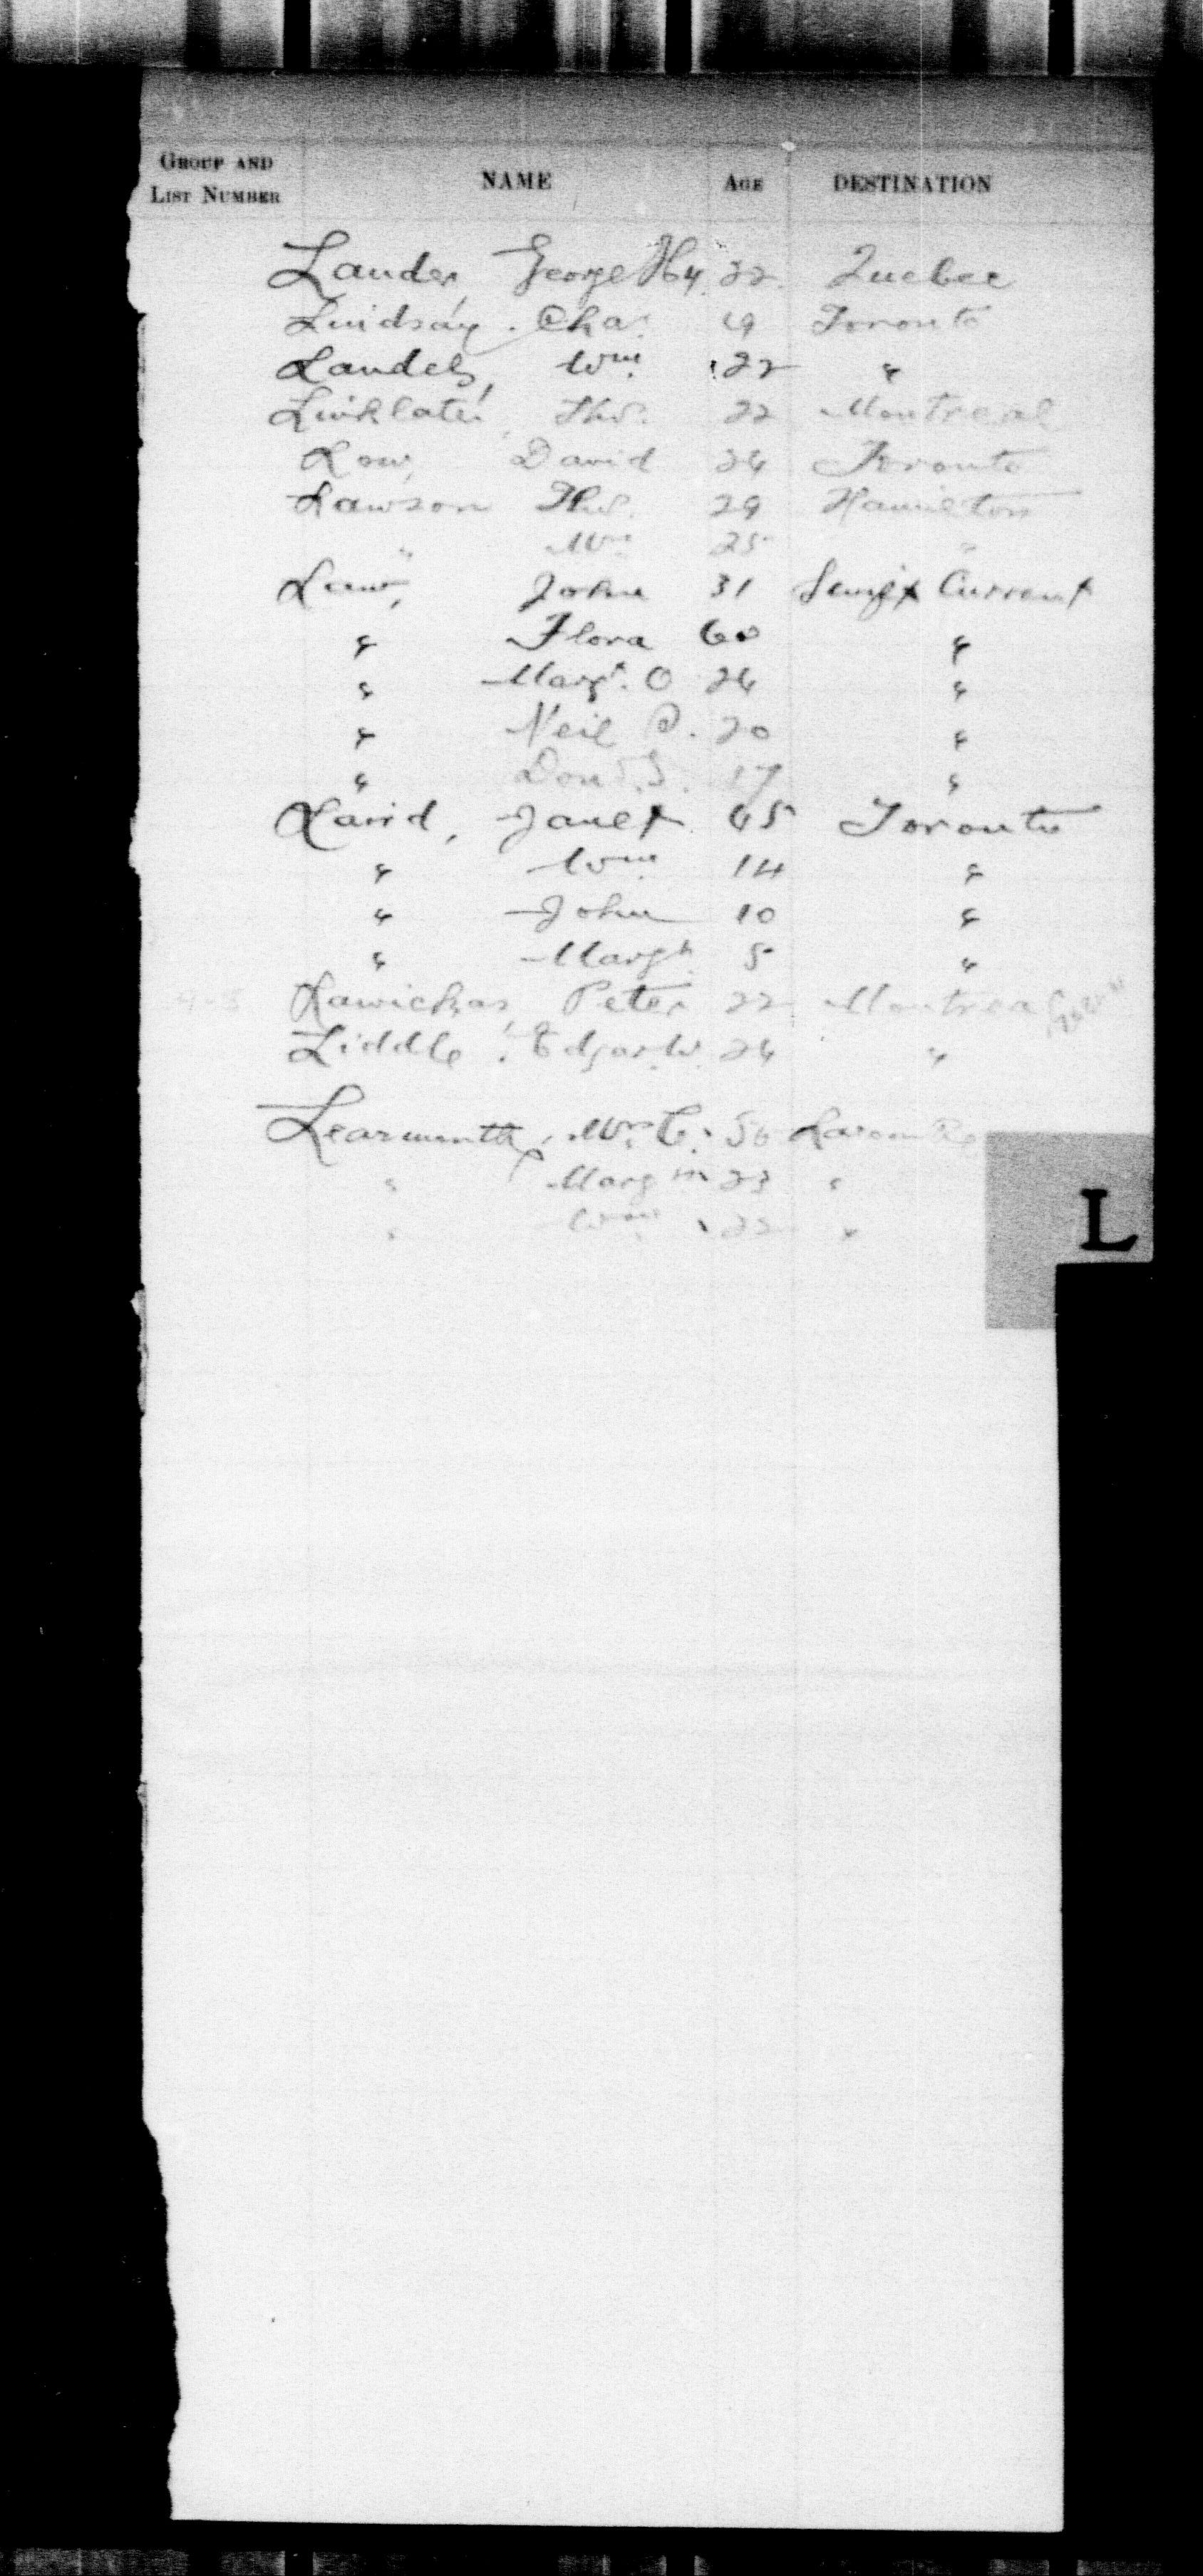 GROUP AND LIST NUMBER NAME AGE DESTINATION
Lander, George Hy. 32 Quebec
Lindsay. Chas. 19 Toronto
Landels, Wm 22 "
Linklater, Tho. 22 Montreal
Low, David 24 Toronto
Lawson Tho. 29 Hamilton
" Mrs 25 "
Law, John 31 Swift Current
" Flora 60 "
" Margt. O 24 "
" Neil P. 20 "
" Don. S. 17 "
Laird, Janet 45 Toronto
" Wm 14 "
" John 10 "
" Margt 5 "
Lawickas, Peter 22 Montreal
Liddle, Edgar W. 24 "
Learmonth, Mrs C. 50
" Marg m 23 "
" Wm 22 "
L